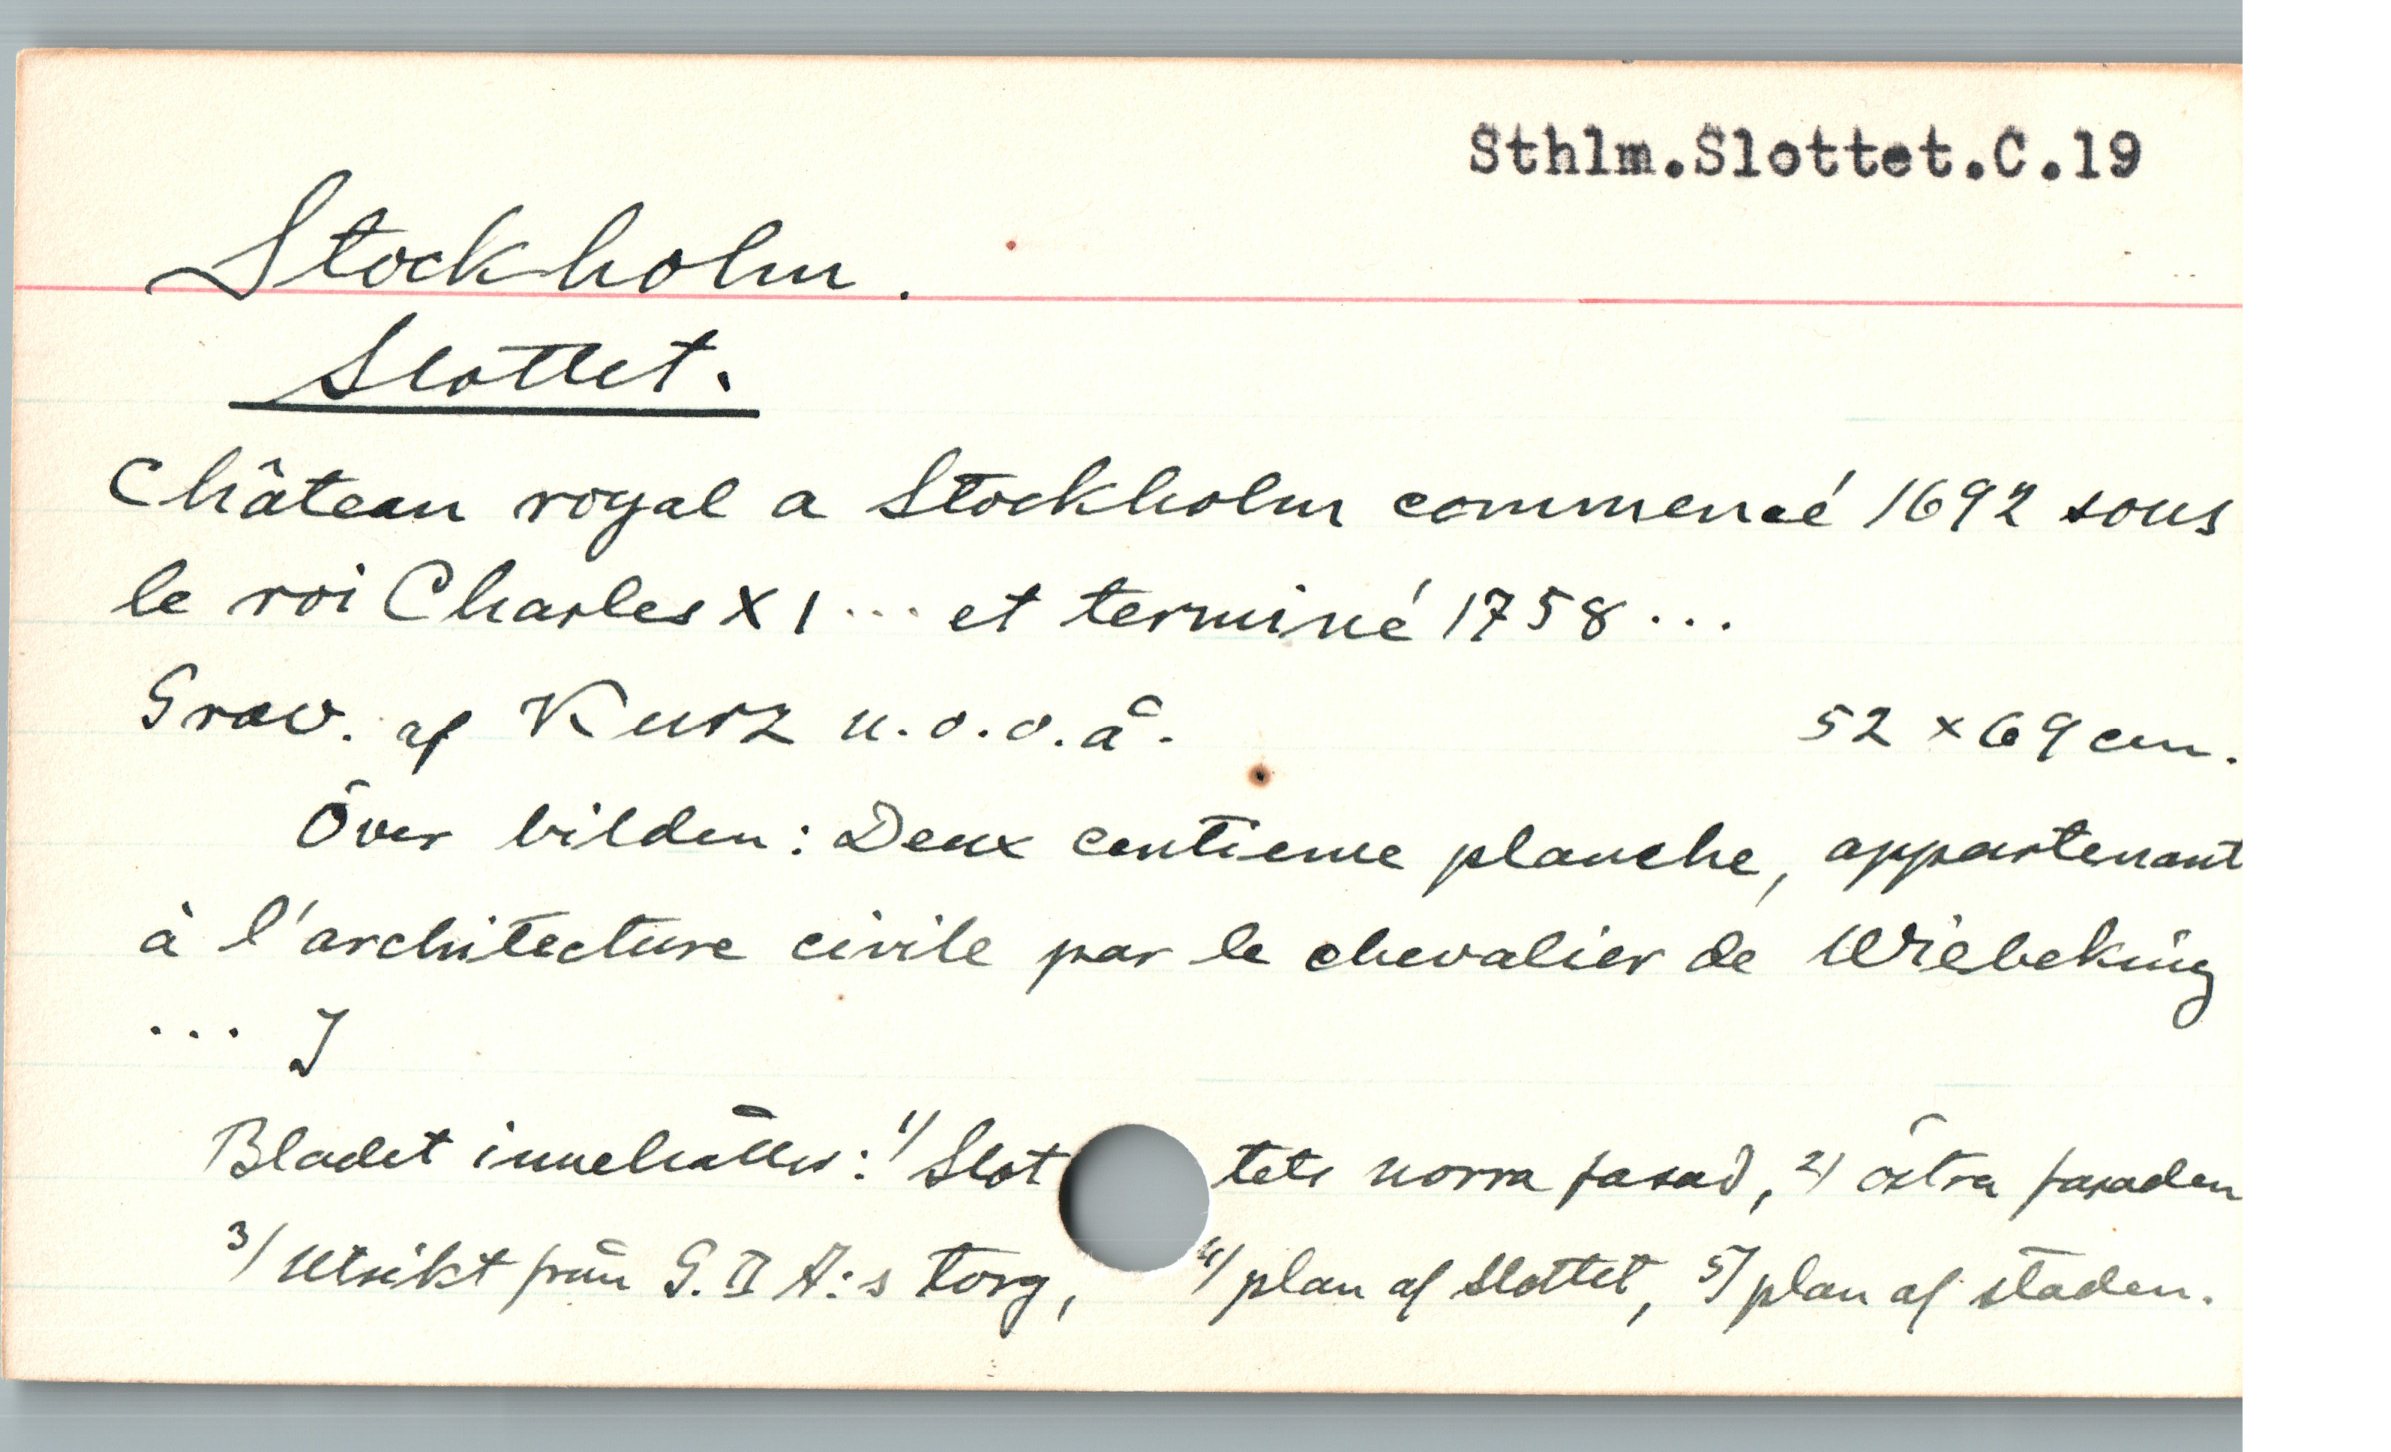 Sthlm.Slottet.C.19
Stockholm.
Slottet.
Château royal a Stockholm commencé 1692 sous
le roi Charles XI ... et terminé 1758 ...
Grav. af Kurz u.o.o.å. 52 × 69 cm.
Över bilden: Deux centieme planche, appartenant
à l'architecture civile par le chevalier de Wiebeking
... J
Bladet innehåller: 1/ Slottets norra fasad, 2/ östra fasaden
3/ Utsikt från G. II A:s torg, 4/ plan af slottet, 5/ plan af staden.